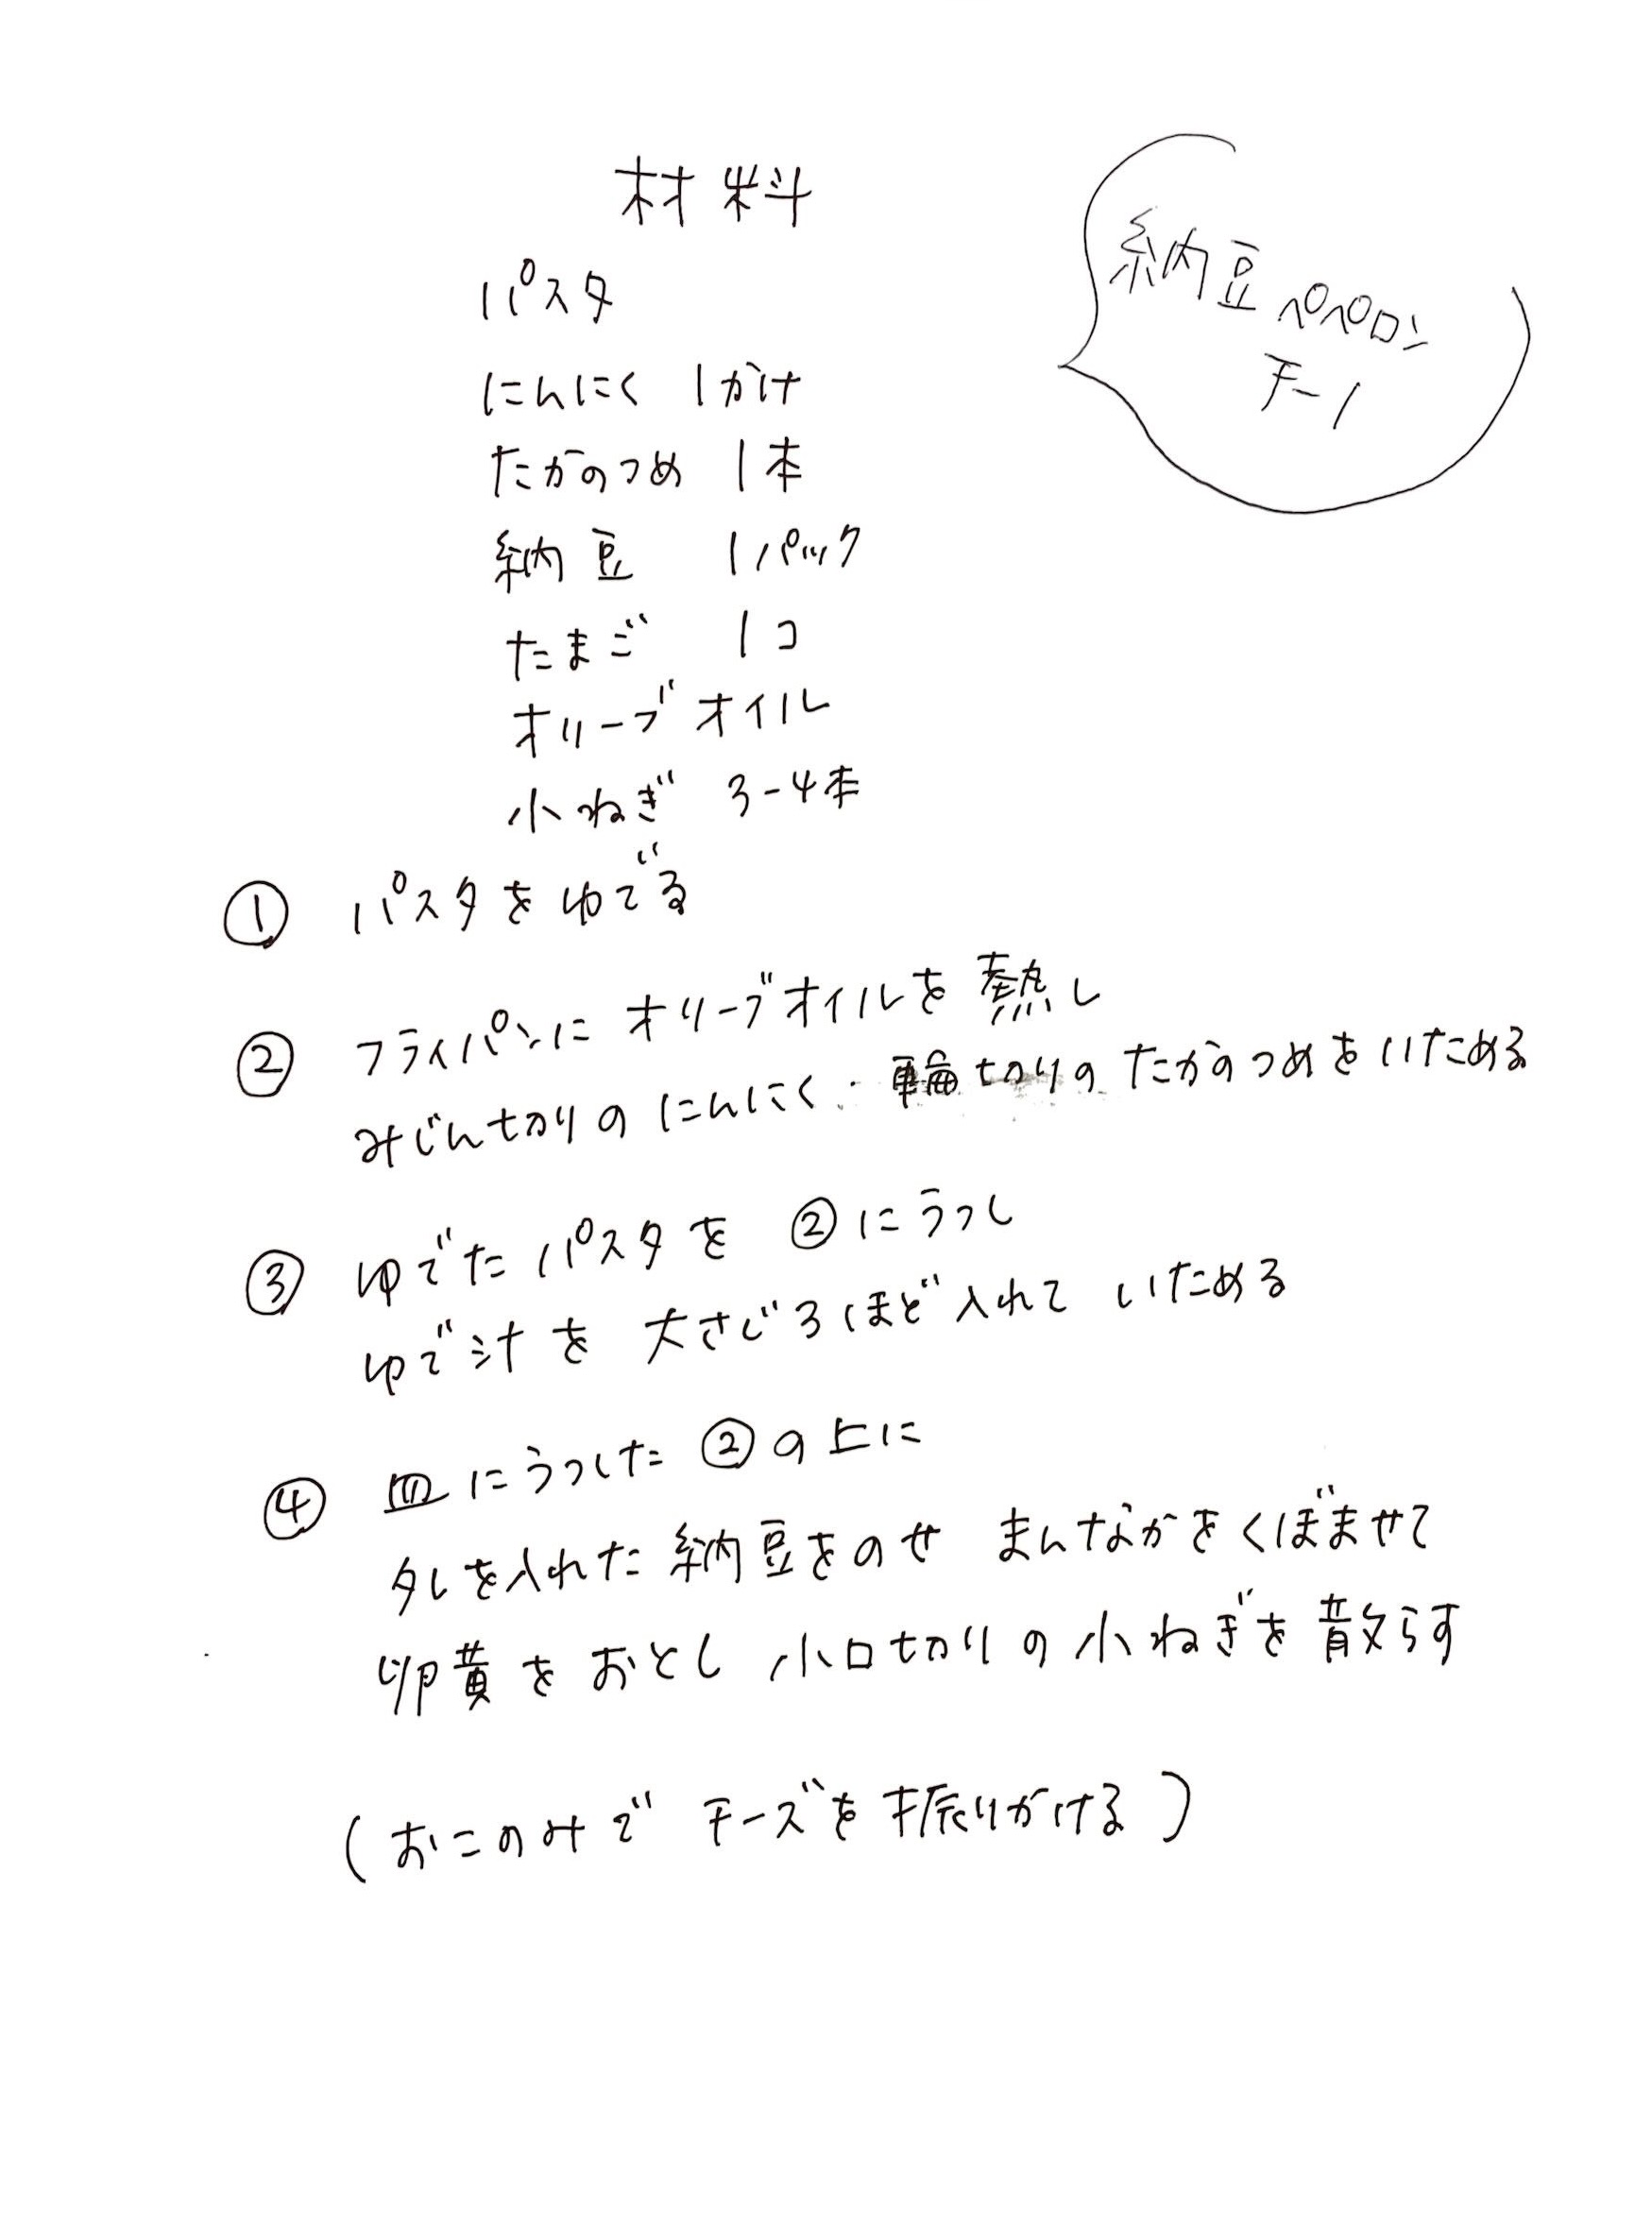 材料
納豆ペペロン
チーノ
パスタ
にんにく 1かけ
たかのつめ 1本
納豆 1パック
たまご 1コ
オリーブオイル
小ねぎ 3-4本
① パスタをゆでる
② フライパンにオリーブオイルを熱し
みじん切りのにんにく・輪切りのたかのつめをいためる
③ ゆでたパスタを②にうつし
ゆで汁を大さじ3ほど入れていためる
④ 皿にうつした②の上に
タレを入れた納豆をのせ まんなかをくぼませて
卵黄をおとし 小口切りの小ねぎを散らす
(おこのみで チーズを振りかける)